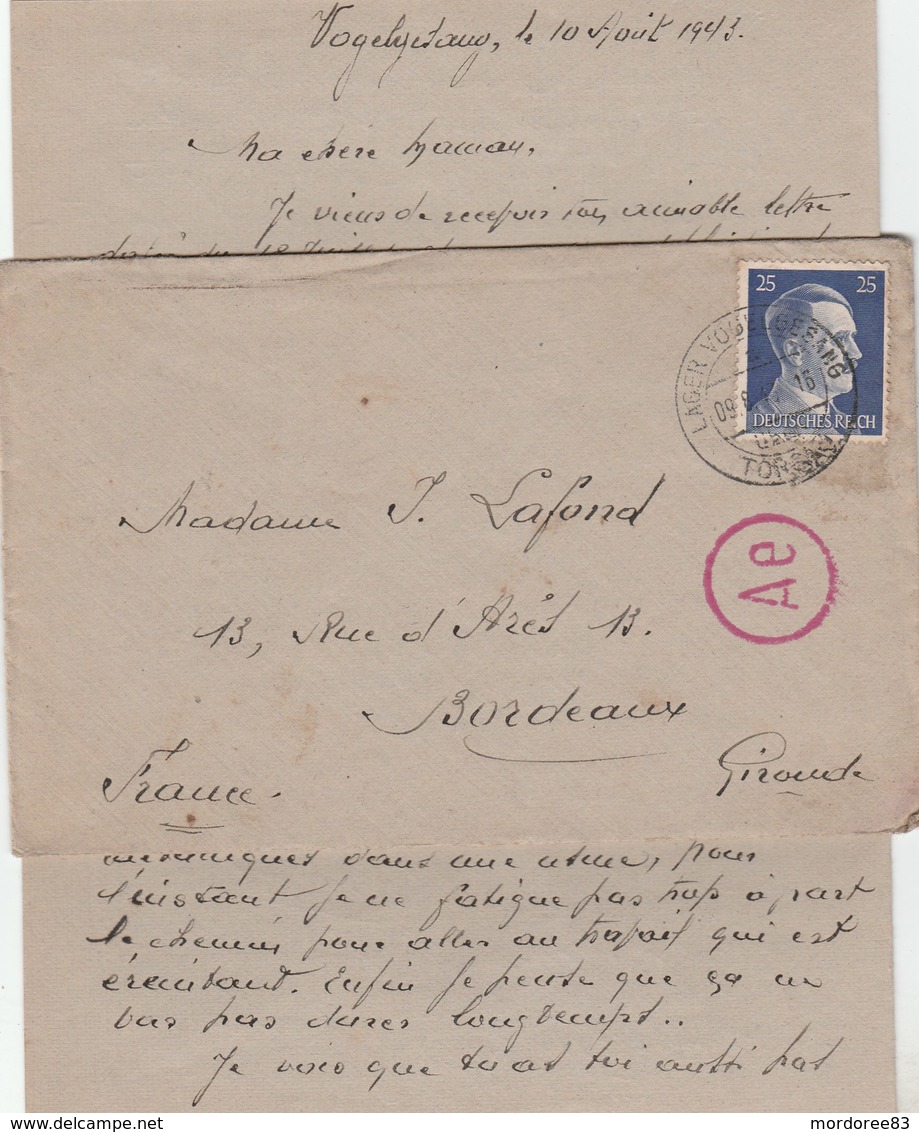 Vogelgesang, le 10 Août 1943.
Ma chère Maman,
Je viens de recevoir ton aimable lettre
25 25
DEUTSCHES REICH
LAGER VOGELGESANG
TORGAU
Ae
Madame J. Lafond
13, Rue d'Arès 13.
Bordeaux
Gironde
France.
mécaniques dans une usine, pour
l'instant je ne fatigue pas trop à part
le chemin pour aller au travail qui est
éreintant. Enfin je pense que ça ne
vas pas durer longtempt..
Je vois que tu as toi aussi pas
www.delcampe.net
mordoree83